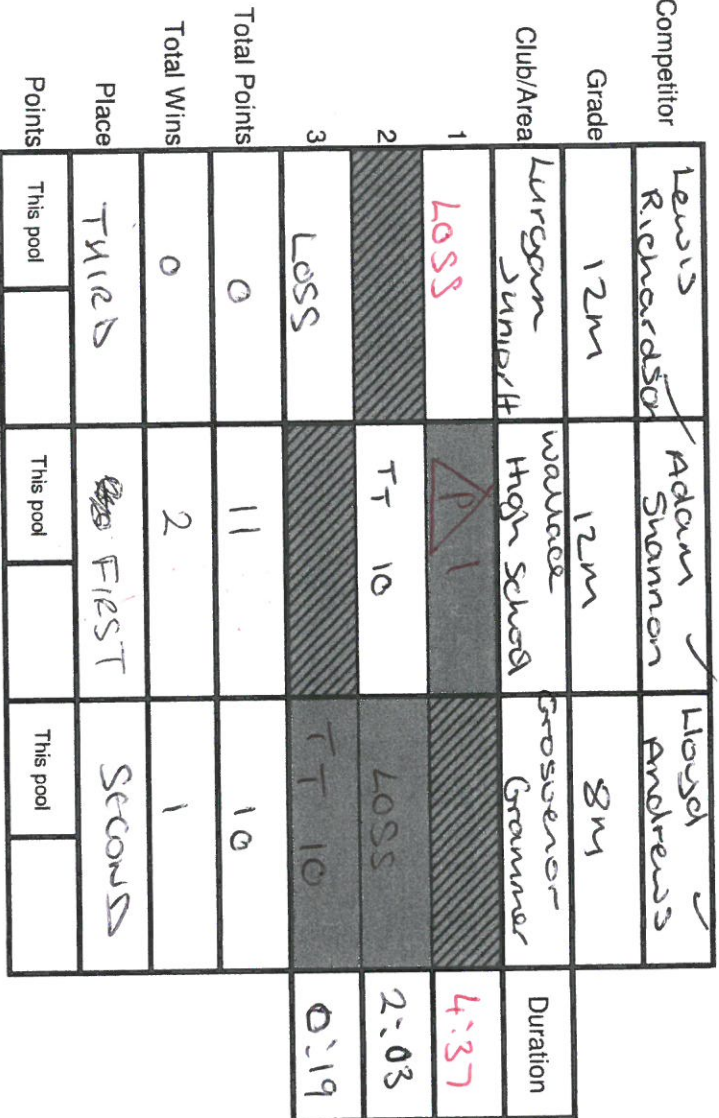 Competitor
Lewis
Richardson
Adam
Shannon
Lloyd
Andrews
Grade
12M
12M
8M
Club/Area
Lurgan
Junior H
Wallace
High School
Grosvenor
Grammer
Duration
1
LOSS
P 1
4:37
2
TT 10
LOSS
2:03
3
LOSS
TT 10
0:19
Total Points
0
11
10
Total Wins
0
2
1
Place
THIRD
FIRST
SECOND
Points
This pool
This pool
This pool